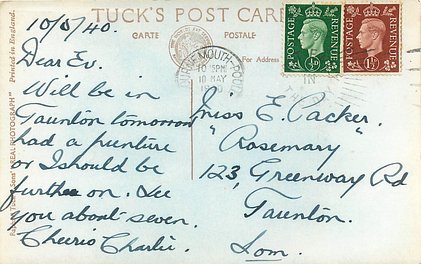 TUCK'S POST CARD
CARTE POSTALE
For Address
10/5/40.
Dear Ev.
Will be in
Taunton tomorrow
had a punture
or I should be
further on. See
you about seven.
Cheerio Charlie.
BOURNEMOUTH-POOLE
5PM
10 MAY
Miss E. Packer.
"Rosemary"
123, Greenway Rd
Taunton.
Som.
POSTAGE
REVENUE
½D
POSTAGE
REVENUE
1½D
Printed in England.
"REAL PHOTOGRAPH"